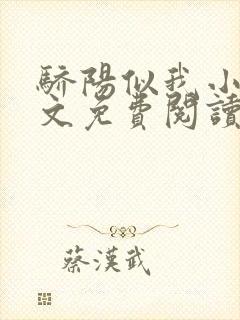 驕陽似我小
文免費閱讀
蔡漢武